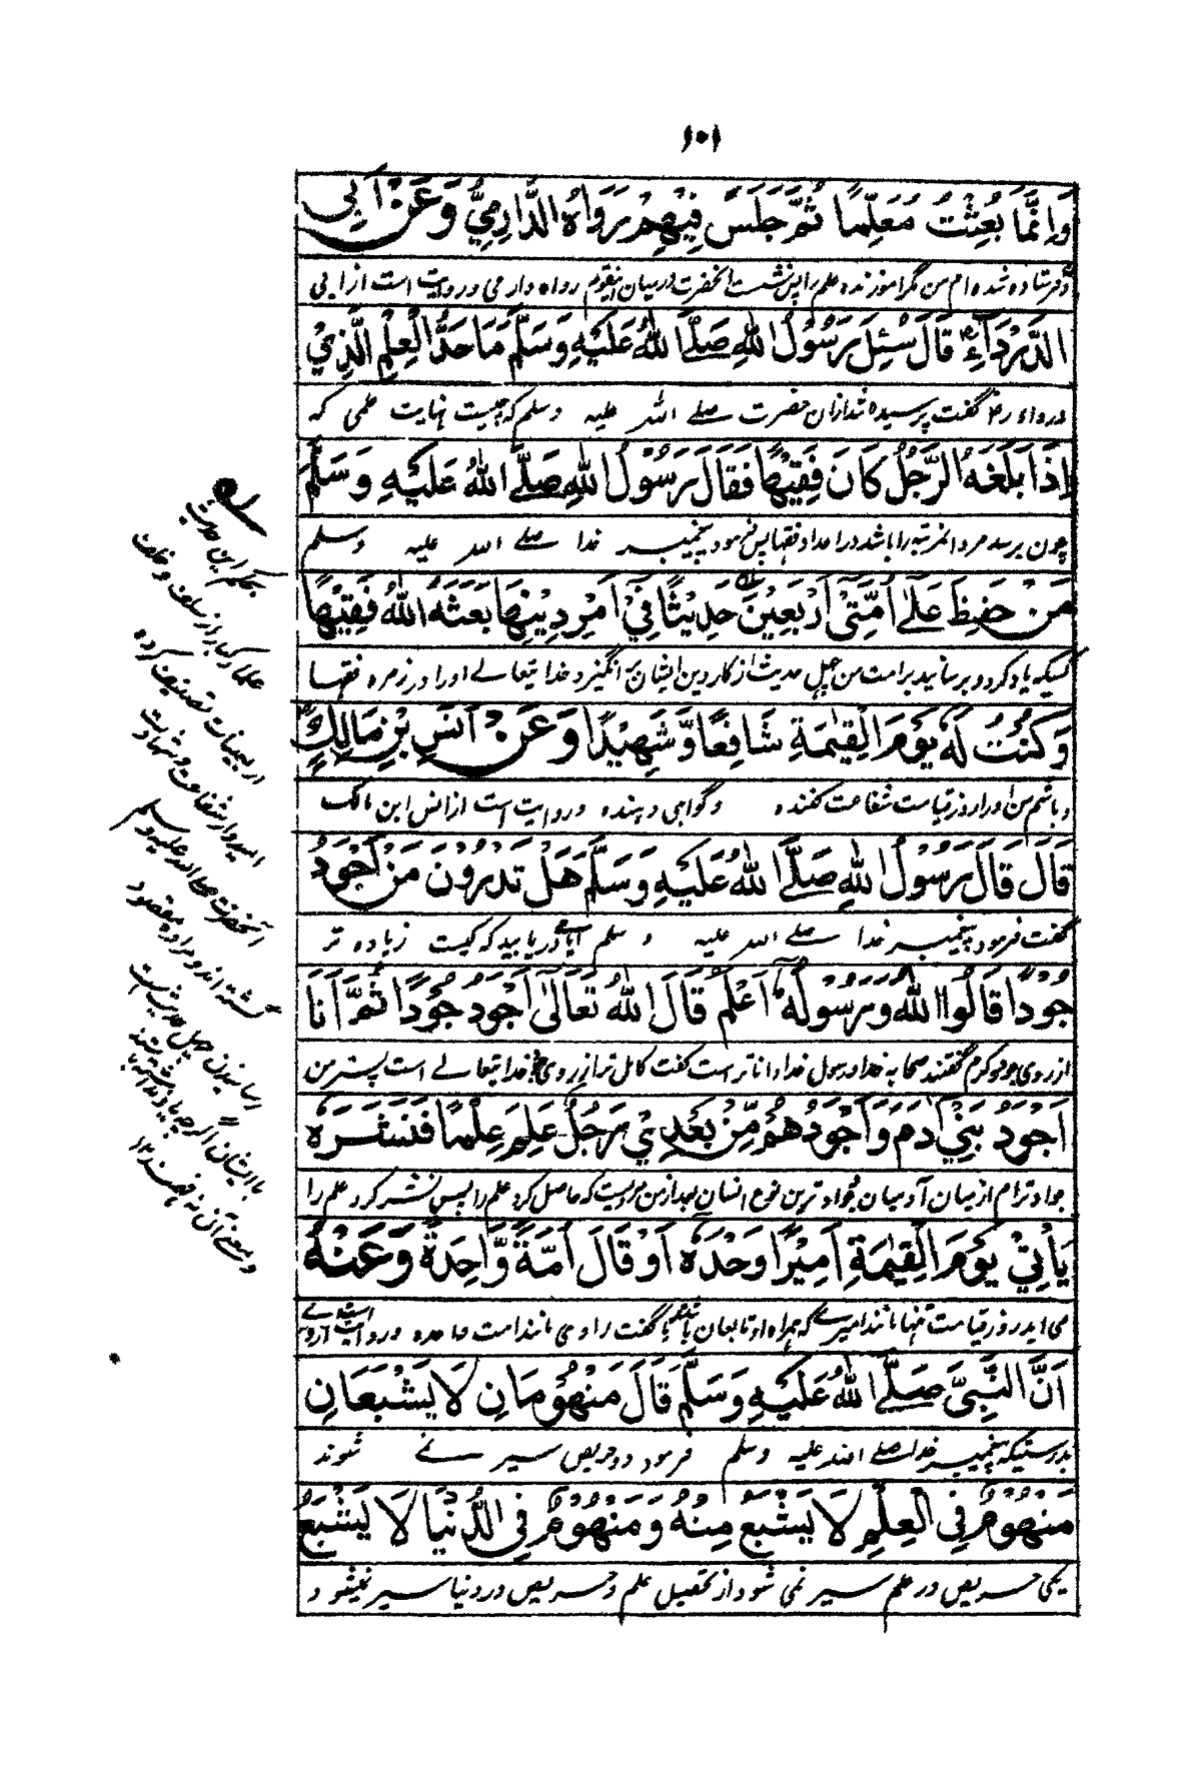 ١٠١
وَاِنَّمَا بُعِثْتُ مُعَلِّمًا ثُمَّ جَلَسَ فِيْهِمْ رَوَاهُ الدَّارِمِيُّ وَعَنْ اَبِى
وفرستاده شده ام من مگر آموزنده علم را پس نشست آنحضرت درمیان اینقوم رواه دارمی و روایت است از ابی
الدَّرْدَآءِ قَالَ سُئِلَ رَسُوْلُ اللّٰهِ صَلَّے اللّٰهُ عَلَيْهِ وَسَلَّمَ مَا حَدُّ الْعِلْمِ الَّذِيْ
درداء رض گفت پرسیده شد ازان حضرت صلے اللہ علیہ وسلم که چیست نهایت علمی که
اِذَا بَلَغَهُ الرَّجُلُ كَانَ فَقِيْهًا فَقَالَ رَسُوْلُ اللّٰهِ صَلَّے اللّٰهُ عَلَيْهِ وَسَلَّمَ
چون برسد مرد آنمرتبه را باشد در اعداد فقها پس فرمود پیغمبر خدا صلے اللہ علیہ وسلم
مَنْ حَفِظَ عَلٰے اُمَّتِىْ اَرْبَعِيْنَ حَدِيْثًا فِيْ اَمْرِ دِيْنِهَا بَعَثَهُ اللّٰهُ فَقِيْهًا
کسیکه یاد کرد و برسانید بر امت من چهل حدیث از کار دین ایشان برانگیزد خدایتعالے اورا در زمره فقها
وَكُنْتُ لَهٗ يَوْمَ الْقِيٰمَةِ شَافِعًا وَّشَهِيْدًا وَعَنْ اَنَسِ بْنِ مَالِكٍ
و باشم من اورا روز قیامت شفاعت کننده و گواهی دهنده و روایت است از انس ابن مالک
قَالَ قَالَ رَسُوْلُ اللّٰهِ صَلَّے اللّٰهُ عَلَيْهِ وَسَلَّمَ هَلْ تَدْرُوْنَ مَنْ اَجْوَدُ
گفت فرمود پیغمبر خدا صلے اللہ علیہ وسلم آیا دریابید که کیست زیاده تر
جُوْدًا قَالُوا اللّٰهُ وَرَسُوْلُهٗ اَعْلَمُ قَالَ اللّٰهُ تَعَالٰى اَجْوَدُ جُوْدًا ثُمَّ اَنَا
ازروی جود و کرم گفتند صحابه خدا و رسول خدا داناتر است گفت کامل تر از روی جود خدایتعالے است پستر من
اَجْوَدُ بَنِيْ اٰدَمَ وَاَجْوَدُهُمْ مِّنْ بَعْدِيْ رَجُلٌ عَلِمَ عِلْمًا فَنَشَرَهٗ
جوادترام از میان آدمیان و جوادترین نوع انسان بعد از من مردیست که حاصل کرد علم را پس نشر کرد علم را
يَأْتِيْ يَوْمَ الْقِيٰمَةِ اَمِيْرًا وَحْدَهٗ اَوْ قَالَ اُمَّةً وَّاحِدَةً وَعَنْهُ
می آید روز قیامت تنها مانند امیرے که همراه او تابعان باشند یا گفت راوی مانند امت واحده و روایت است
اَنَّ النَّبِىَّ صَلَّے اللّٰهُ عَلَيْهِ وَسَلَّمَ قَالَ مَنْهُوْمَانِ لَا يَشْبَعَانِ
بدرستیکه پیغمبر خدا صلے اللہ علیہ وسلم فرمود دو حریص سیر نے شوند
مَنْهُوْمٌ فِى الْعِلْمِ لَا يَشْبَعُ مِنْهُ وَمَنْهُوْمٌ فِى الدُّنْيَا لَا يَشْبَعُ
یکی حریص در علم سیر نمی شود از تحصیل علم و حریص در دنیا سیر نمیشود
بحکم این حدیث
علما کبار از سلف و خلف
اربعینات تصنیف کرده
امیدوار شفاعت و شهادت
آنحضرت صلی اللہ علیہ وسلم
گشته اند و مراد و مقصود
رسانیدن چهل حدیث است